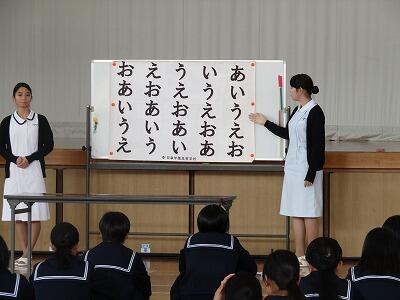 あいうえお
いうえおあ
うえおあい
えおあいう
おあいうえ